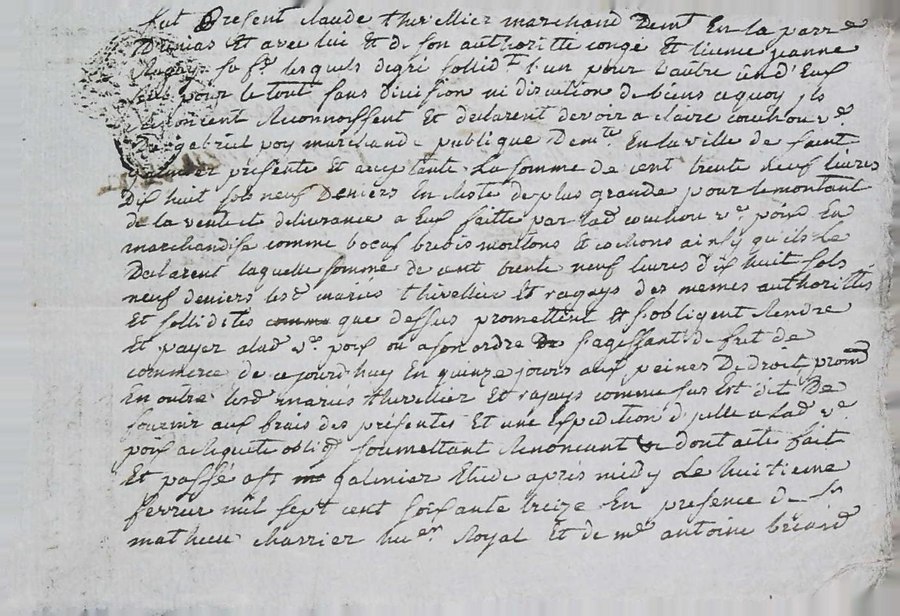 fut Present claude thevellier marchand demt En la parre
Dunias Et avec lui Et de son authoritté congé Et licence jeanne
Ragays sa fe lesquels degré sollidt l'un pour l'autre un d'Eux
seul pour le tout sans division ni discution de biens aquoy ils
renoncent Reconnoissent Et declarent devoir a claire couchou ve
De gabriel pois marchande publique Demte En la ville de saint
galmier présente Et aceptante La somme de cent trente neuf livres
dix huit sols neuf deniers En reste de plus grande pour le montant
de la vente et délivrance a Eux faitte par lad couchou ve pois En
marchandise comme boeuf brebis mouttons Et cochons ainsy qu'ils Le
Declarent laquelle somme de cent trente neuf livres dix huit sols
neuf deniers lesd mariés thevellier Et ragays des memes authorittés
Et sollidités comme que dessus promettent Et s'obligent Rendre
Et payer alad ve pois ou a son ordre De s'agissant de fait de
commerce de cejourdhuy En quinze jours aux peines De droit prom
En outre lesd mariés thevellier Et ragays comme sus Est dit De
fournir aux frais des présentes Et une Expedition d'jcelle a lad ve
pois acliquete obligt soumettant Renoncant & dont acte fait
Et passé a st galmier Etude après midy Le huitieme
fevrier mil sept cent soixante treize En presence de sr
mathieu charrier huer Royal Et de me antoine briand